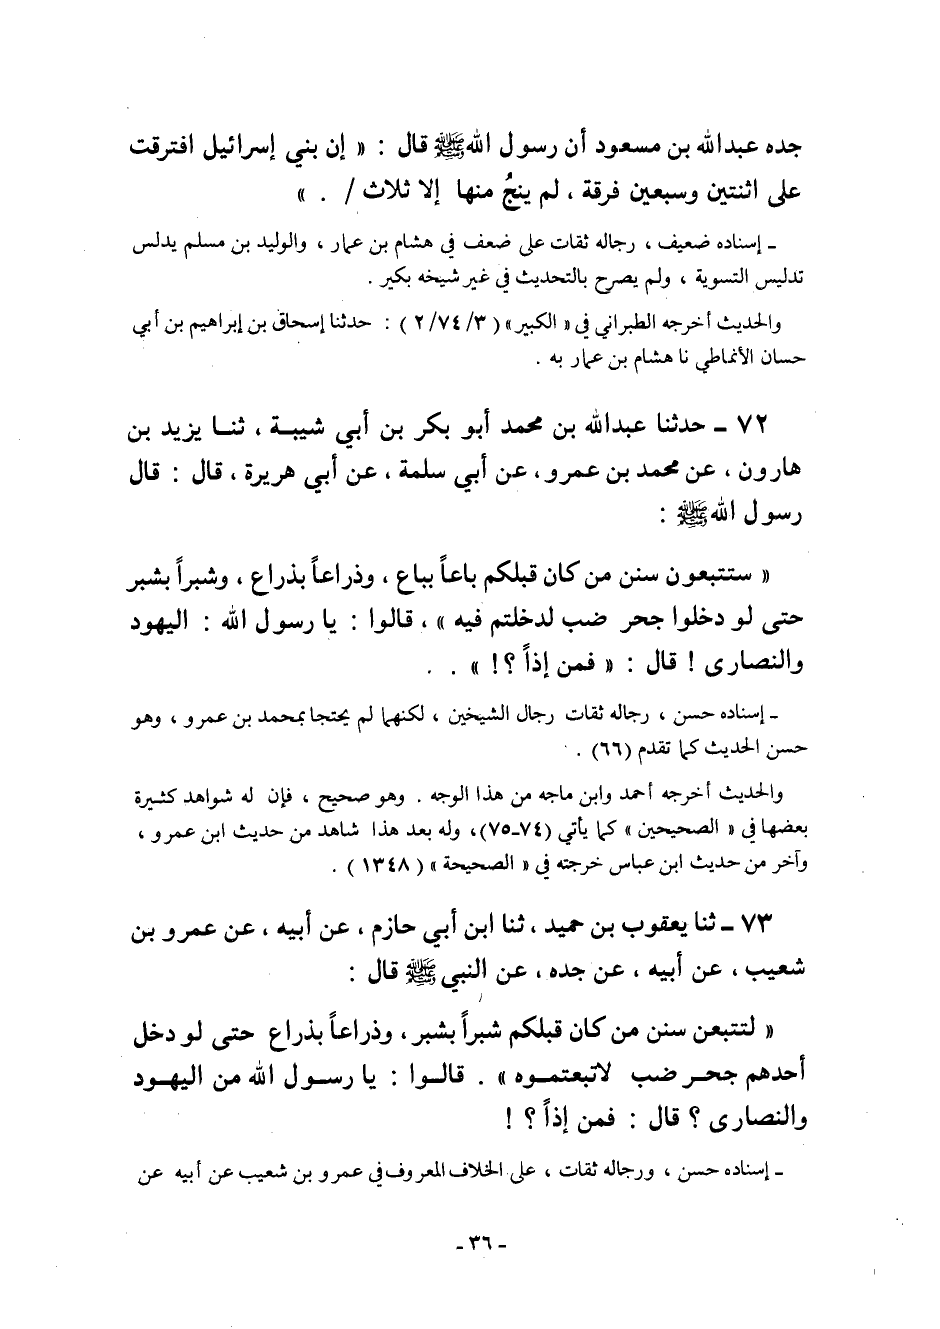 جده عبدالله بن مسعود أن رسول الله ﷺ قال : « إن بني إسرائيل افترقت
على اثنتين وسبعين فرقة ، لم ينجُ منها إلا ثلاث / . »
ـ إسناده ضعيف ، رجاله ثقات على ضعف في هشام بن عمار ، والوليد بن مسلم يدلس
تدليس التسوية ، ولم يصرح بالتحديث في غير شيخه بكير .
والحديث أخرجه الطبراني في « الكبير» ( ٣/ ٧٤/ ٢ ) : حدثنا إسحاق بن إبراهيم بن أبي
حسان الأنماطي نا هشام بن عمار به .
٧٢ ـ حدثنا عبدالله بن محمد أبو بكر بن أبي شيبة ، ثنا يزيد بن
هارون ، عن محمد بن عمرو، عن أبي سلمة ، عن أبي هريرة ، قال : قال
رسول الله ﷺ :
« ستتبعون سنن من كان قبلكم باعاً بباع ، وذراعاً بذراع ، وشبراً بشبر
حتى لو دخلوا جحر ضب لدخلتم فيه » ، قالوا : يا رسول الله : اليهود
والنصارى ! قال : « فمن إذاً ؟! » . .
ـ إسناده حسن ، رجاله ثقات رجال الشيخين ، لكنهما لم يحتجا بمحمد بن عمرو ، وهو
حسن الحديث كما تقدم (٦٦) .
والحديث أخرجه أحمد وابن ماجه من هذا الوجه . وهو صحيح ، فإن له شواهد كثيرة
بعضها في « الصحيحين » كما يأتي (٧٤ـ٧٥)، وله بعد هذا شاهد من حديث ابن عمرو ،
وآخر من حديث ابن عباس خرجته في « الصحيحة » ( ١٣٤٨ ) .
٧٣ ـ ثنا يعقوب بن حميد ، ثنا ابن أبي حازم ، عن أبيه ، عن عمرو بن
شعيب ، عن أبيه ، عن جده ، عن النبي ﷺ قال :
« لتتبعن سنن من كان قبلكم شبراً بشبر ، وذراعاً بذراع حتى لو دخل
أحدهم جحر ضب لاتبعتموه » . قالوا : يا رسول الله من اليهود
والنصارى ؟ قال : فمن إذاً ؟ !
ـ إسناده حسن ، ورجاله ثقات ، على الخلاف المعروف في عمرو بن شعيب عن أبيه عن
- ٣٦ -